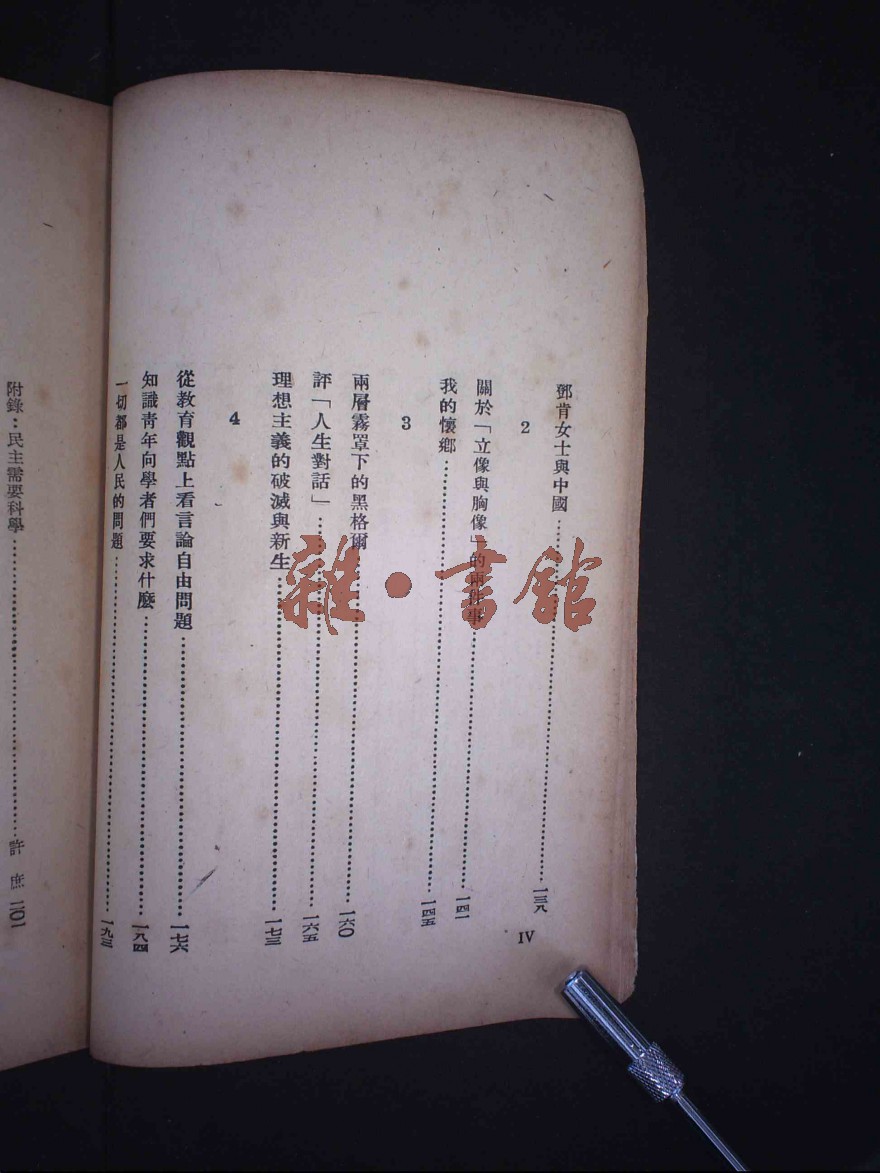 鄧肯女士與中國……一三八
2
關於「立像與胸像」的兩件事……一四一
我的懷鄉……一四五
3
兩層霧罩下的黑格爾……一六〇
評「人生對話」……一六五
理想主義的破滅與新生……一七三
4
從教育觀點上看言論自由問題……一七六
知識青年向學者們要求什麼……一八四
一切都是人民的問題……一九三
IV
附錄：民主需要科學……許 庶 二〇一
雜·書館